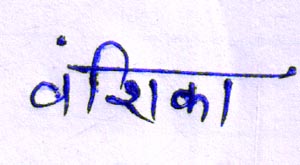 वंशिका